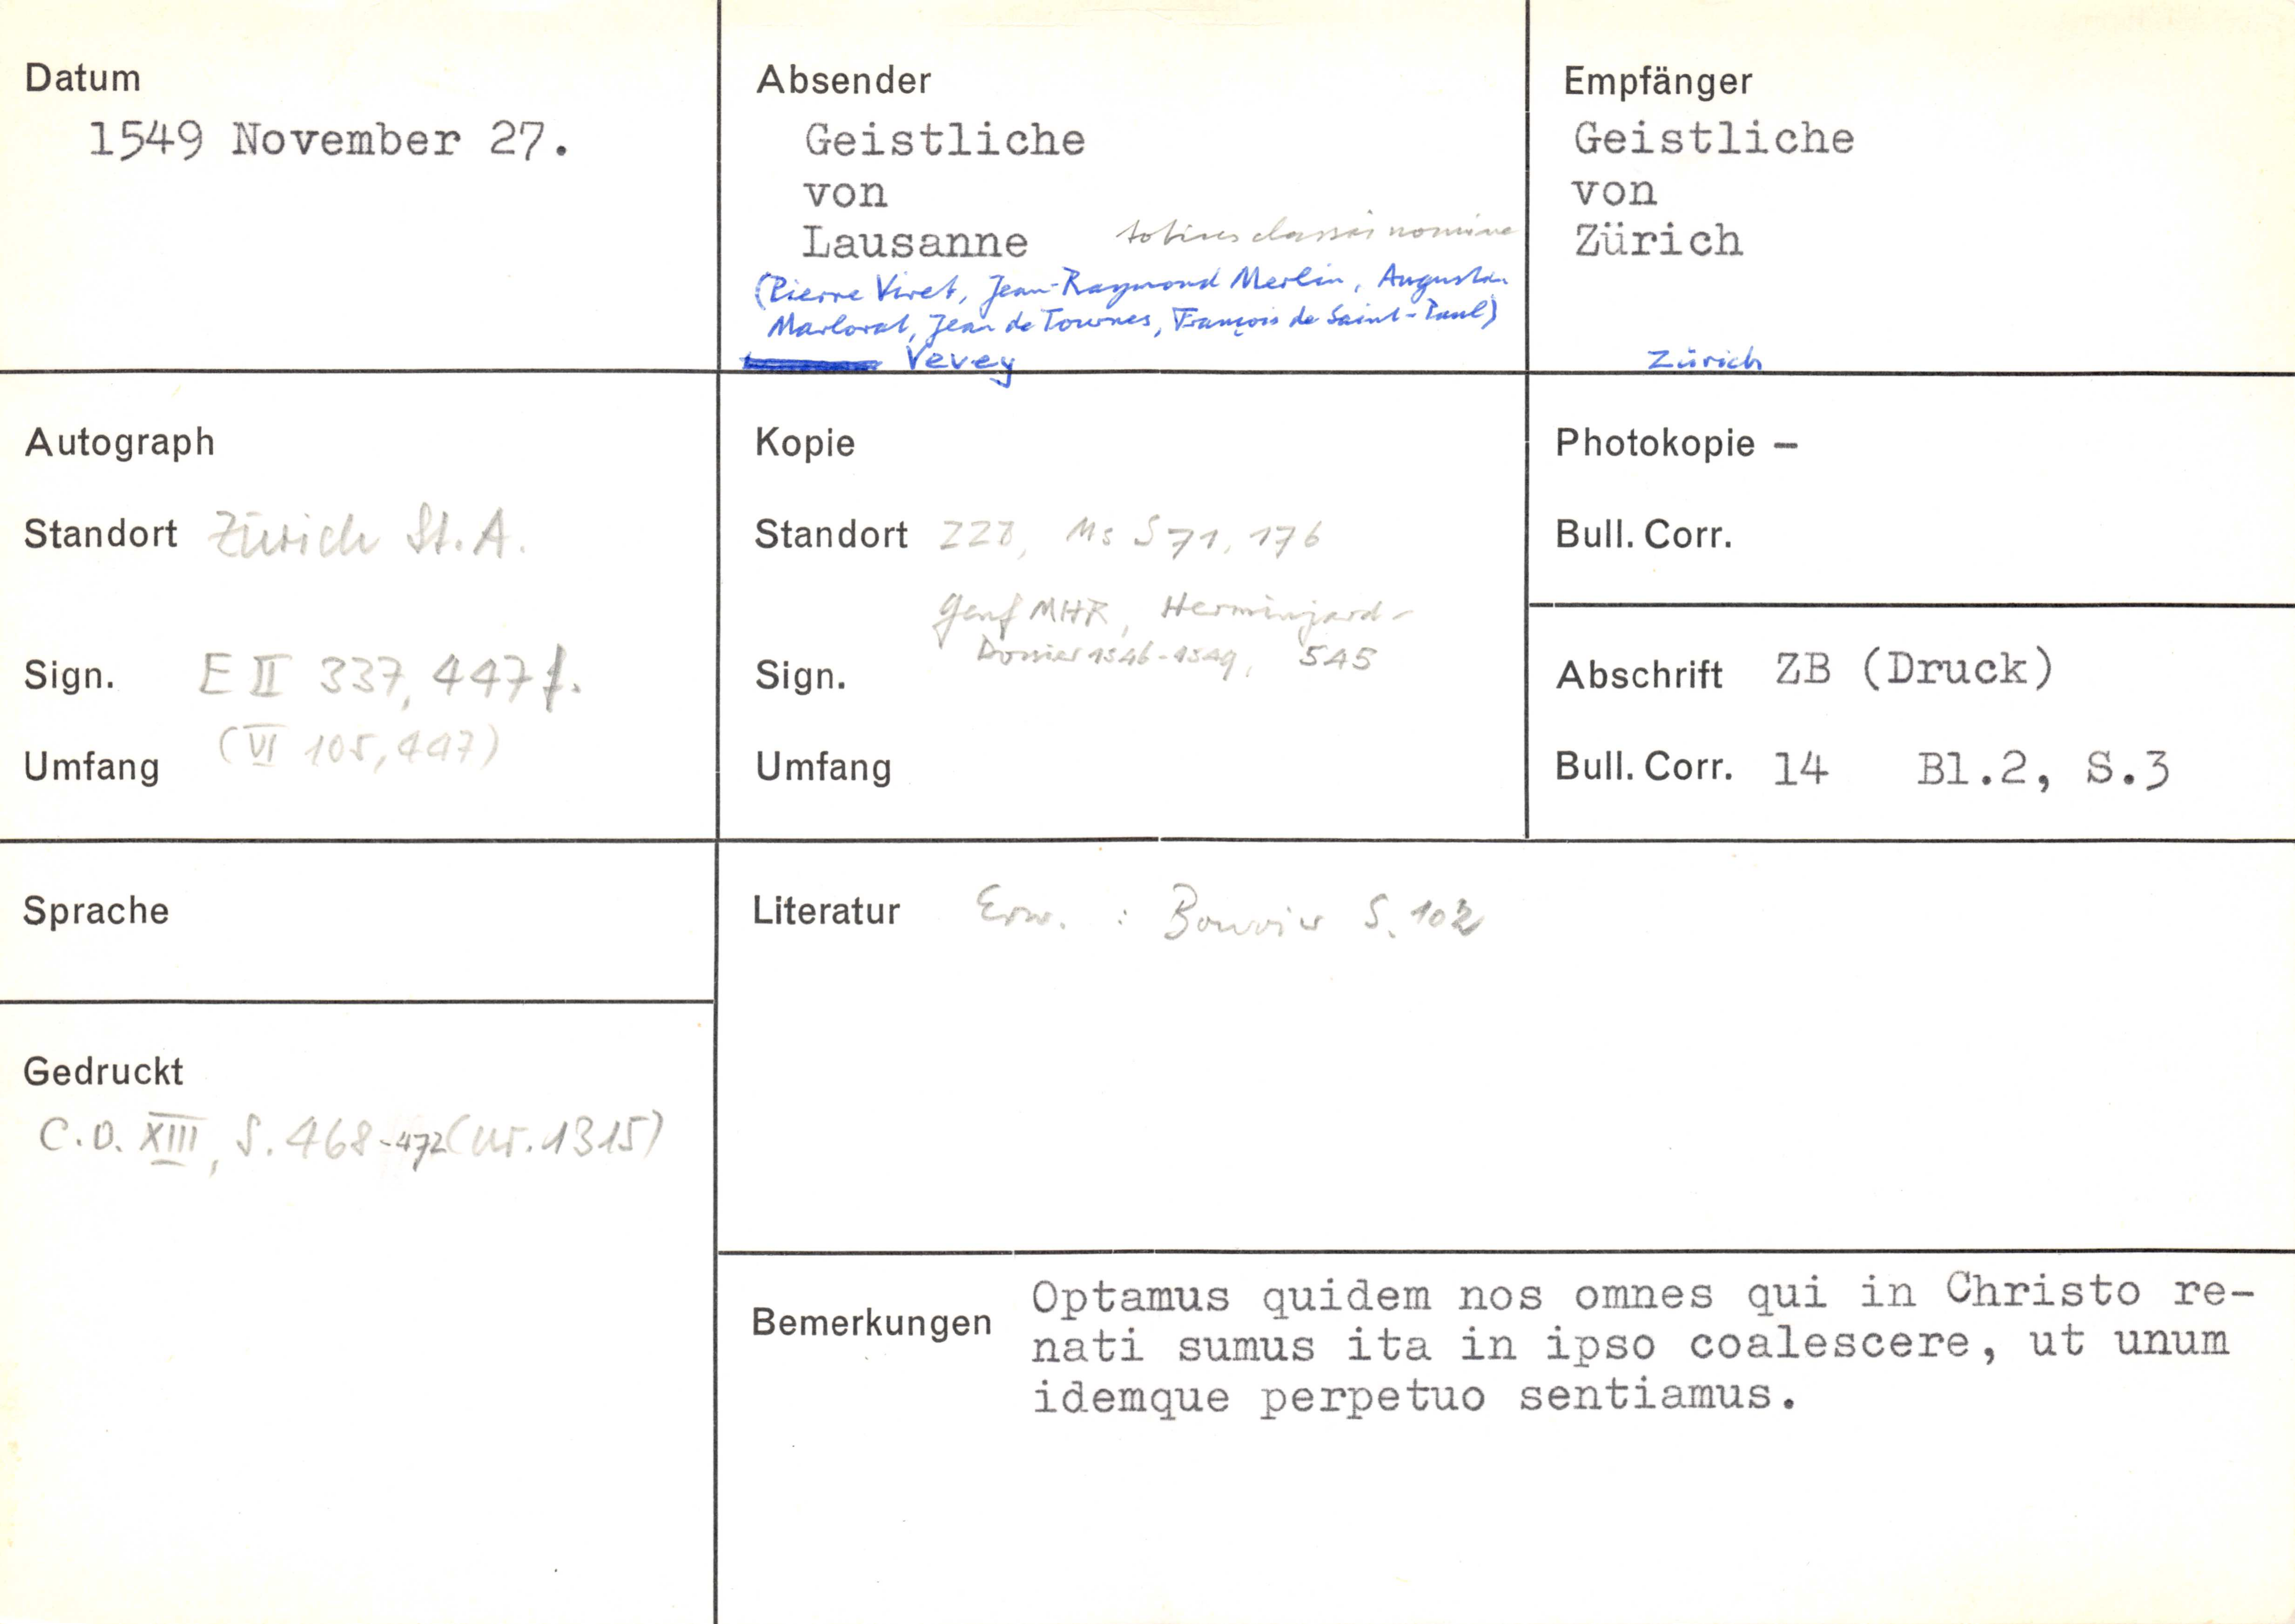 Datum
1549 November 27.
Absender
Geistliche
von
Lausanne totius classis nomine
(Pierre Viret, Jean-Raymond Merlin, Augustin
Marlorat, Jean de Tournes, François de Saint-Paul)
Vevey
Empfänger
Geistliche
von
Zürich
Zürich
Autograph
Standort Zürich St. A.
Sign. E II 337, 447f.
(VI 105, 447)
Umfang
Kopie
Standort ZZB, Ms S 71, 176
Genf MHR, Herminjard-
Dossier 1546-1549, 545
Sign.
Umfang
Photokopie –
Bull. Corr.
Abschrift ZB (Druck)
Bull. Corr. 14 Bl.2, S.3
Sprache
Gedruckt
C.O. XIII, S. 468-472 (Nr. 1315)
Literatur Erw. : Bouvier S. 102
Bemerkungen
Optamus quidem nos omnes qui in Christo re-
nati sumus ita in ipso coalescere, ut unum
idemque perpetuo sentiamus.